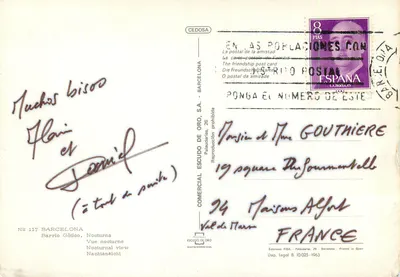 CEDOSA
La postal de la amistad
The friendship post card
O postal de amizade
8
PTAS
ESPAÑA
EN LAS POBLACIONES CON
DISTRITO POSTAL
PONGA EL NUMERO DE ESTE
BARCELONA
COMERCIAL ESCUDO DE ORO, S.A. - BARCELONA
Reproducción prohibida
Muchos bisos
et
Daniel
(à tout de suite)
Monsieur et Mme GOUTHIERE
19 square
94 Maisons Alfort
Val de Marne
FRANCE
No 117 BARCELONA
Barrio Gótico, Nocturna
Vue nocturne
Nocturnal view
Nachtansicht